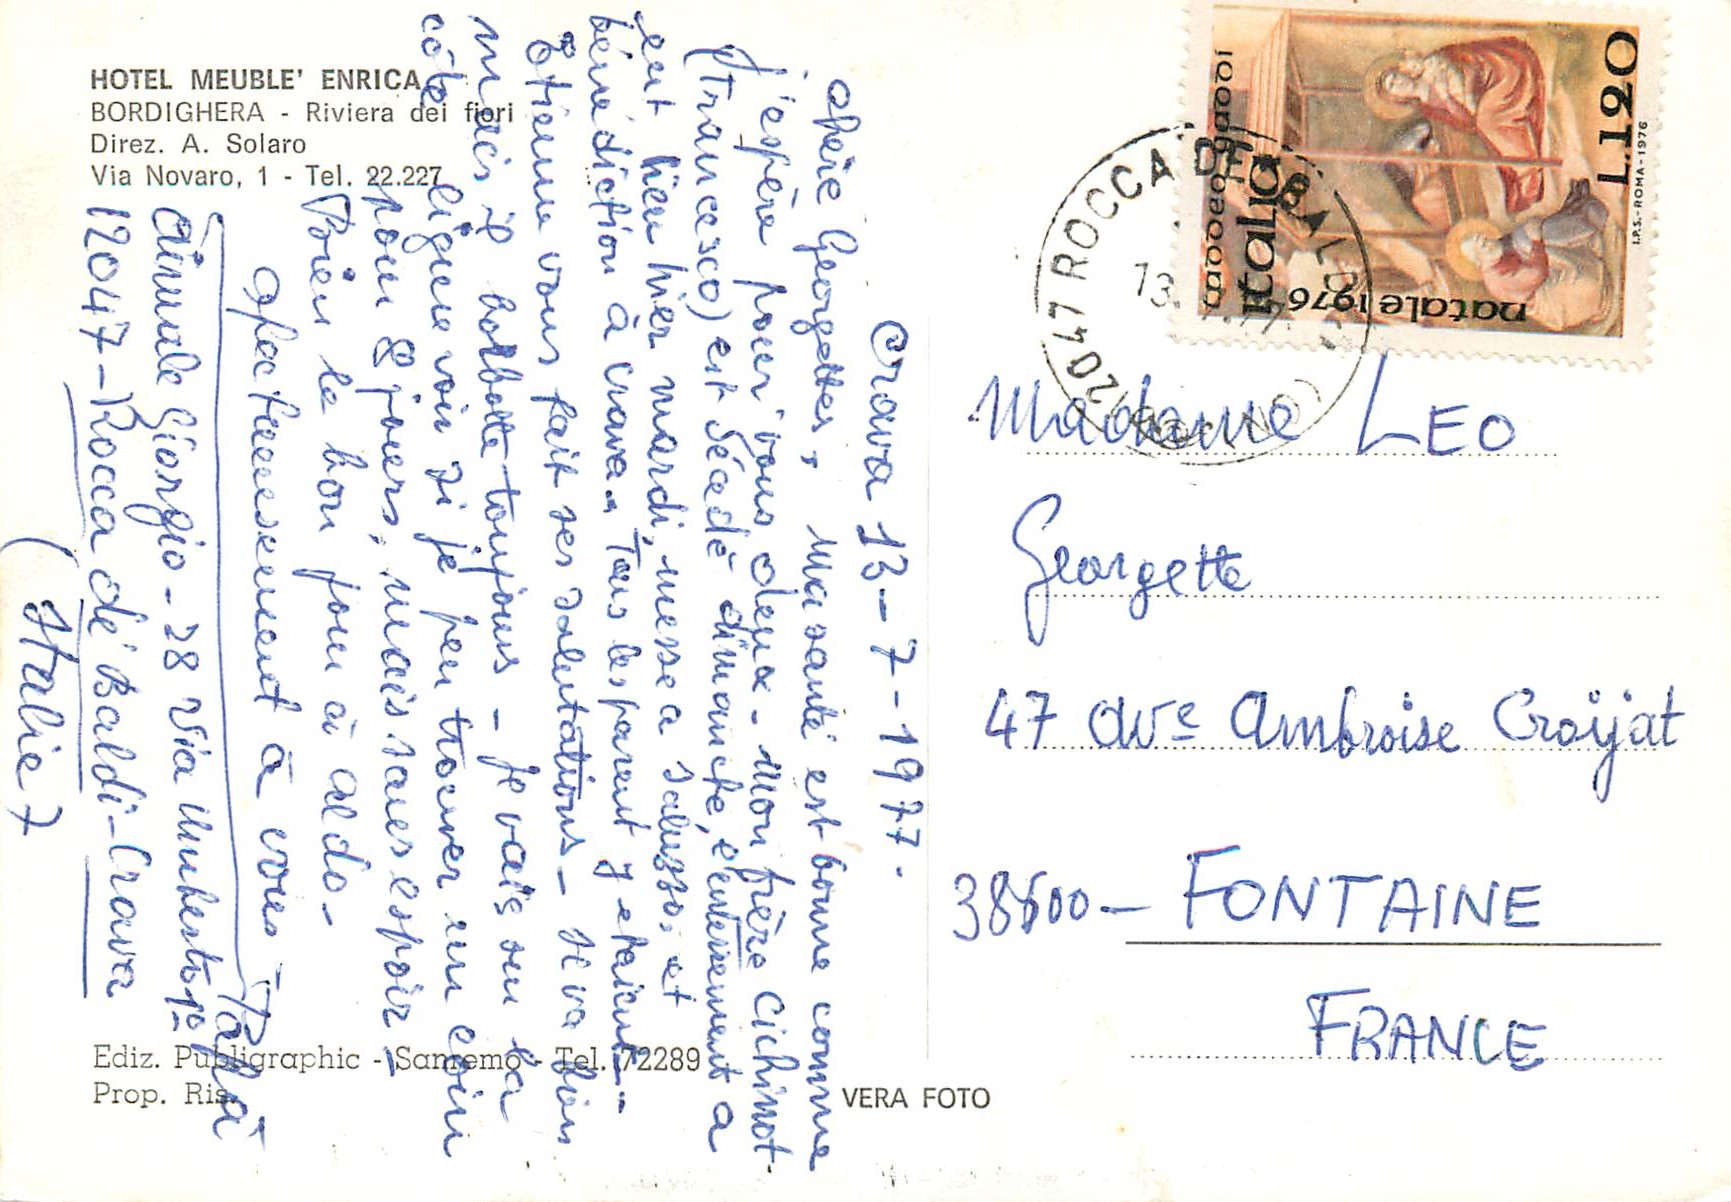 HOTEL MEUBLE' ENRICA
BORDIGHERA - Riviera dei fiori
Direz. A. Solaro
Via Novaro, 1 - Tel. 22.227
Crava 13-7-1977.
Chère Georgette, ma santé est bonne comme
j'espère pour vous deux - Mon frère Cichinot
(Francesco) est décédé dimanche, l'enterrement a
eut lieu hier mardi, messe a Saluzzo, et
bénédiction à Crava. Tous les parent y etaient -
Etienne vous fait ses salutations - Il va bien
mais il boitte toujours - Je vais sur la
côte ligure voir si je peu trouver un coin
pour 8 jours, mais sans espoir -
Bien le bon jour à Aldo -
Affectueusement à vous - Papà
Giorgio - 28 Via Umberto 1º
12047 - Rocca dè Baldi - Crava
(Italie)
Ediz. Publigraphic - Sanremo - Tel. 72289
Prop. Ris.
VERA FOTO
12047 ROCCA DE' BALDI
(CUNEO)
13
77
modeo gaddi
italia
natale 1976
L.120
I.P.S.-ROMA-1976
Madame LEO
Georgette
47 Ave Ambroise Croijat
38600 - FONTAINE
FRANCE